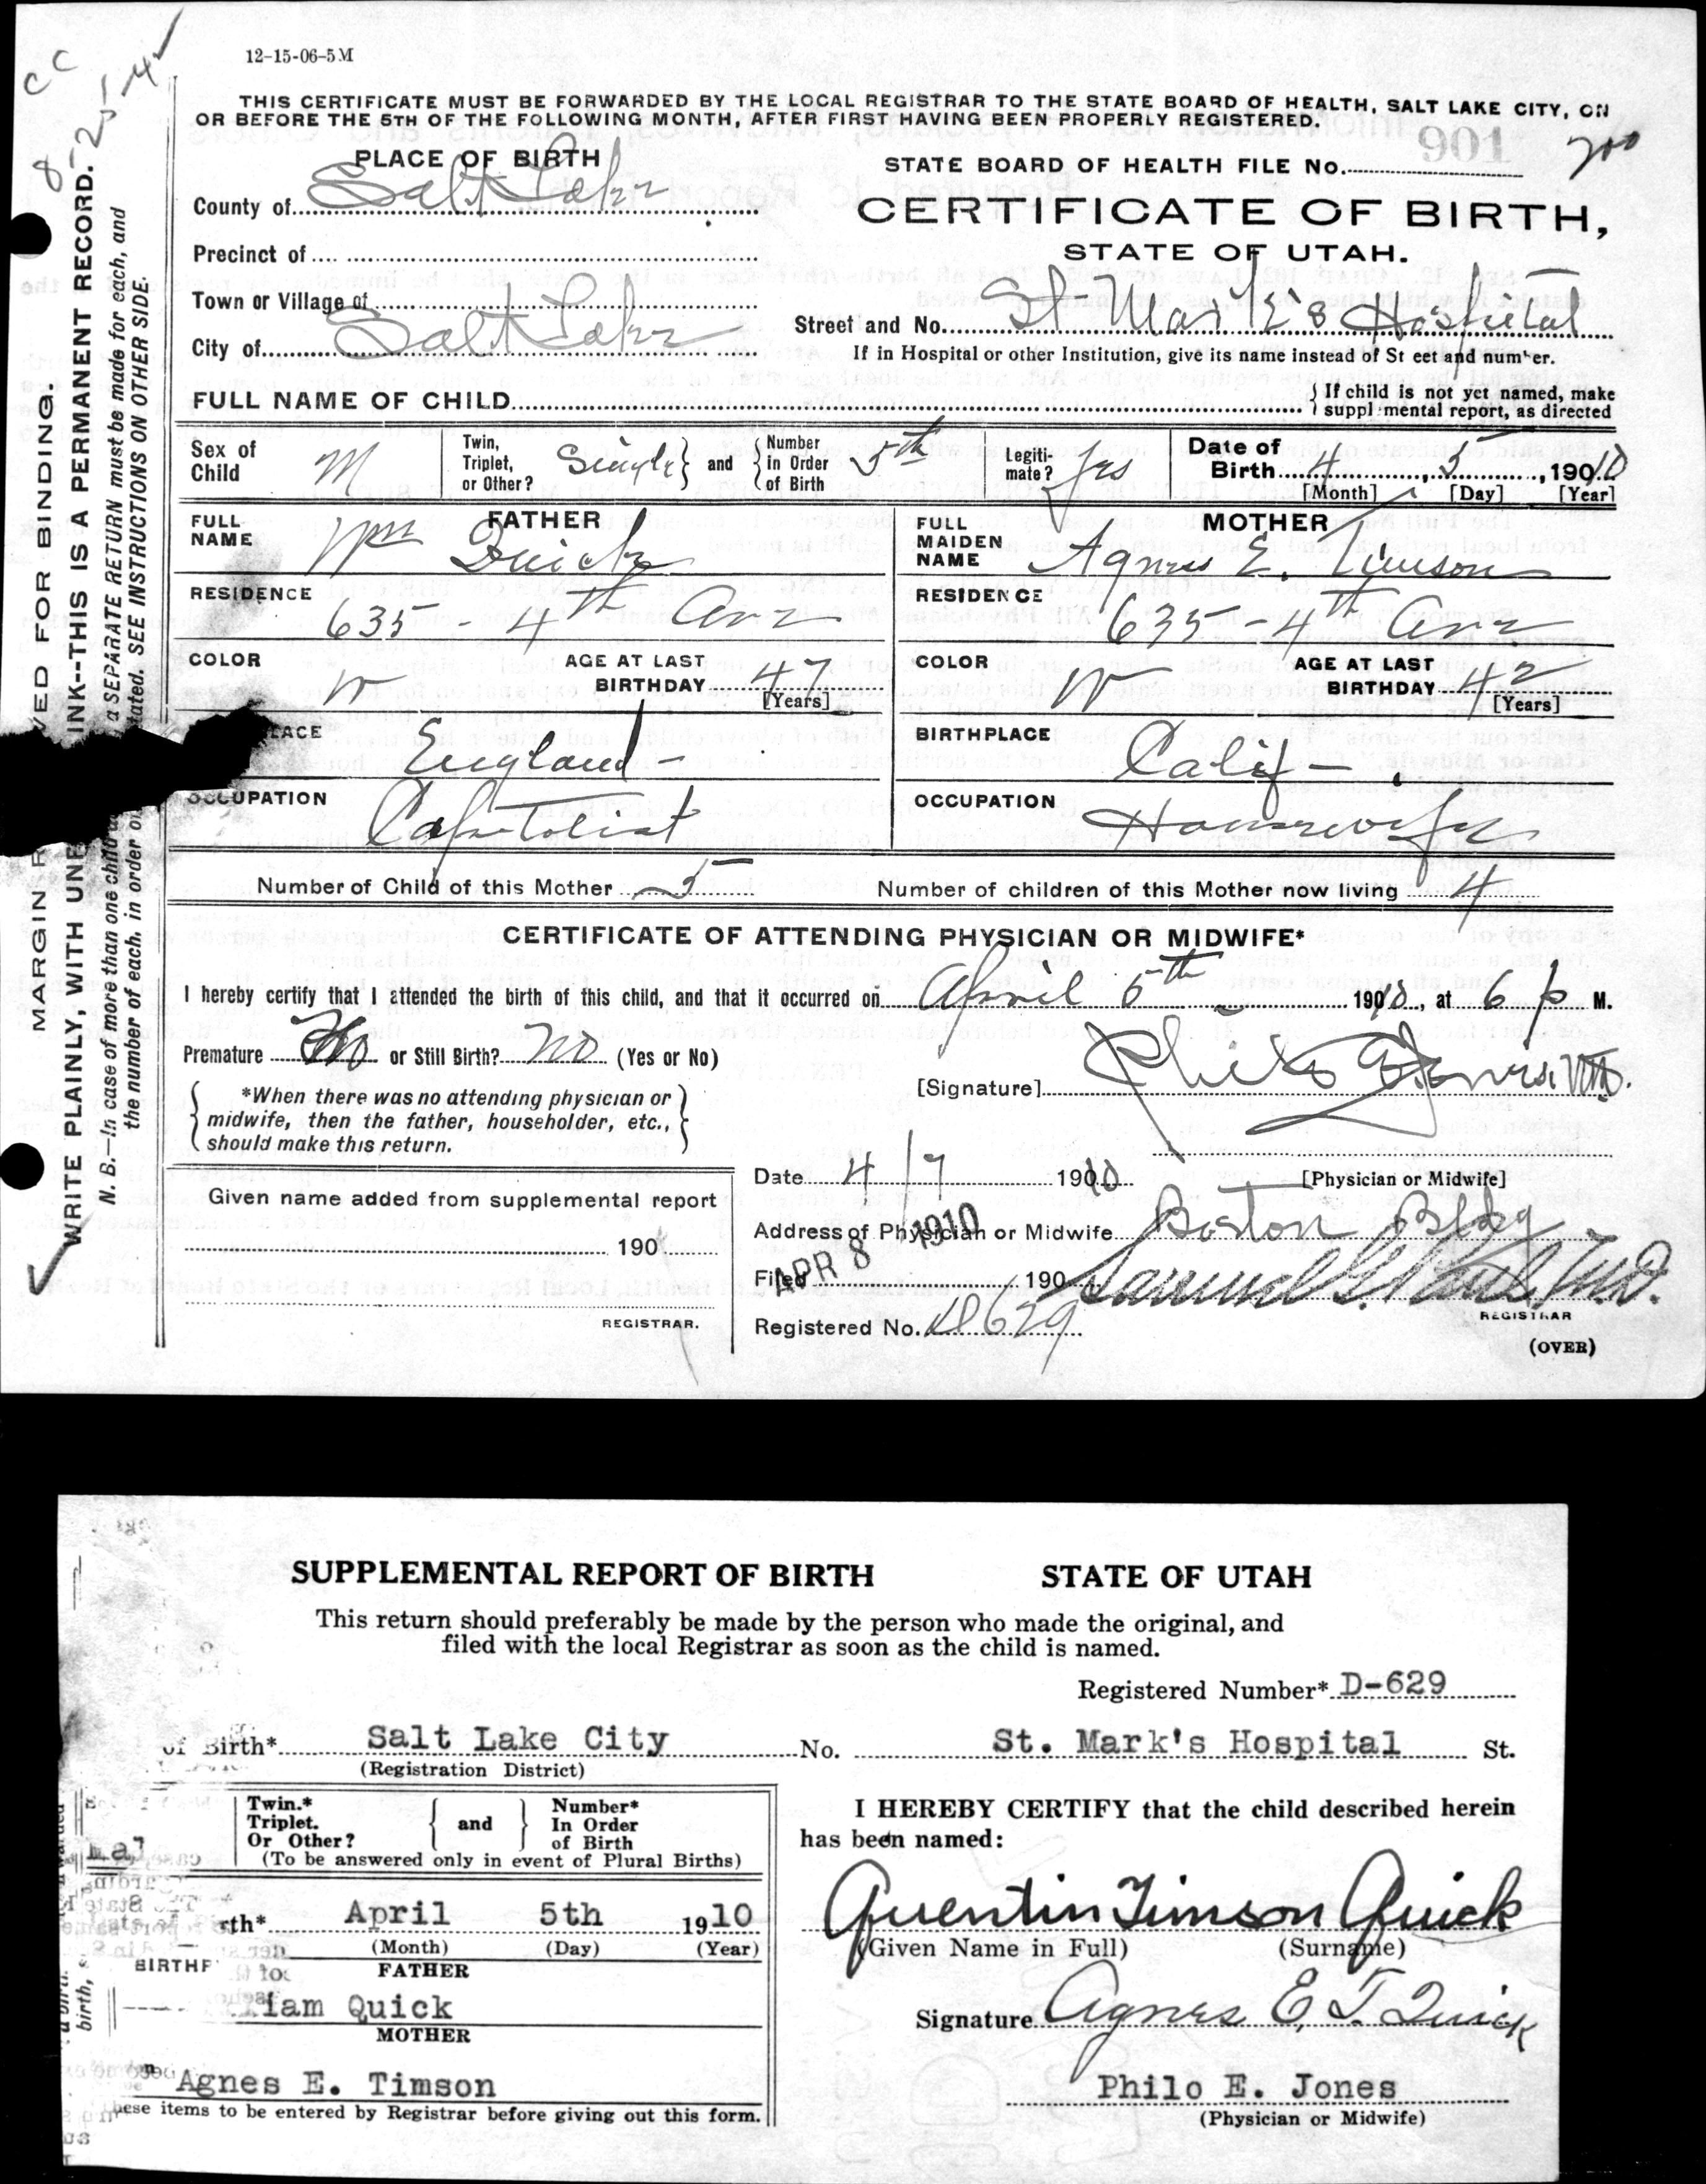 12-15-06-5M
THIS CERTIFICATE MUST BE FORWARDED BY THE LOCAL REGISTRAR TO THE STATE BOARD OF HEALTH, SALT LAKE CITY, ON
OR BEFORE THE 5TH OF THE FOLLOWING MONTH, AFTER FIRST HAVING BEEN PROPERLY REGISTERED.
PLACE OF BIRTH
STATE BOARD OF HEALTH FILE No. 901
County of Salt Lake
CERTIFICATE OF BIRTH,
STATE OF UTAH.
Precinct of
Town or Village of
Street and No. St Mark's Hospital
City of Salt Lake
If in Hospital or other Institution, give its name instead of St eet and number.
FULL NAME OF CHILD
If child is not yet named, make
suppl mental report, as directed
Sex of Child M
Twin, Triplet, or Other? Single and Number in Order of Birth 5th
Legiti-mate? Yes
Date of Birth 4, 5, 1910
[Month] [Day] [Year]
FATHER
FULL NAME Wm Quick
MOTHER
FULL MAIDEN NAME Agnes E. Timson
RESIDENCE 635-4th Ave
RESIDENCE 635-4th Ave
COLOR W AGE AT LAST BIRTHDAY 47 [Years]
COLOR W AGE AT LAST BIRTHDAY 42 [Years]
LACE England-
BIRTHPLACE Calif-
OCCUPATION Capitalist
OCCUPATION Housewife
Number of Child of this Mother 5 Number of children of this Mother now living 4
CERTIFICATE OF ATTENDING PHYSICIAN OR MIDWIFE*
I hereby certify that I attended the birth of this child, and that it occurred on April 5th 1910, at 6 p M.
Premature No or Still Birth? no (Yes or No)
*When there was no attending physician or
midwife, then the father, householder, etc.,
should make this return.
[Signature] Philo E Jones. MD.
Date 4/7 1910
[Physician or Midwife]
Given name added from supplemental report
190
Address of Physician or Midwife Boston Bldg
Filed APR 8 1910 190 Samuel G. M.D.
REGISTRAR.
REGISTRAR
Registered No. D629
(OVER)
MARGIN R VED FOR BINDING.
WRITE PLAINLY, WITH UNF INK--THIS IS A PERMANENT RECORD.
N. B.—In case of more than one child a SEPARATE RETURN must be made for each, and
the number of each, in order o stated. SEE INSTRUCTIONS ON OTHER SIDE.
SUPPLEMENTAL REPORT OF BIRTH STATE OF UTAH
This return should preferably be made by the person who made the original, and
filed with the local Registrar as soon as the child is named.
Registered Number* D-629
of Birth* Salt Lake City No. St. Mark's Hospital St.
(Registration District)
Twin.* Triplet. Or Other? and Number* In Order of Birth
(To be answered only in event of Plural Births)
I HEREBY CERTIFY that the child described herein
has been named:
Quentin Timson Quick
(Given Name in Full) (Surname)
rth* April 5th 1910
(Month) (Day) (Year)
BIRTHP
FATHER
iam Quick
MOTHER
Agnes E. Timson
hese items to be entered by Registrar before giving out this form.
Signature Agnes E. T. Quick
Philo E. Jones
(Physician or Midwife)